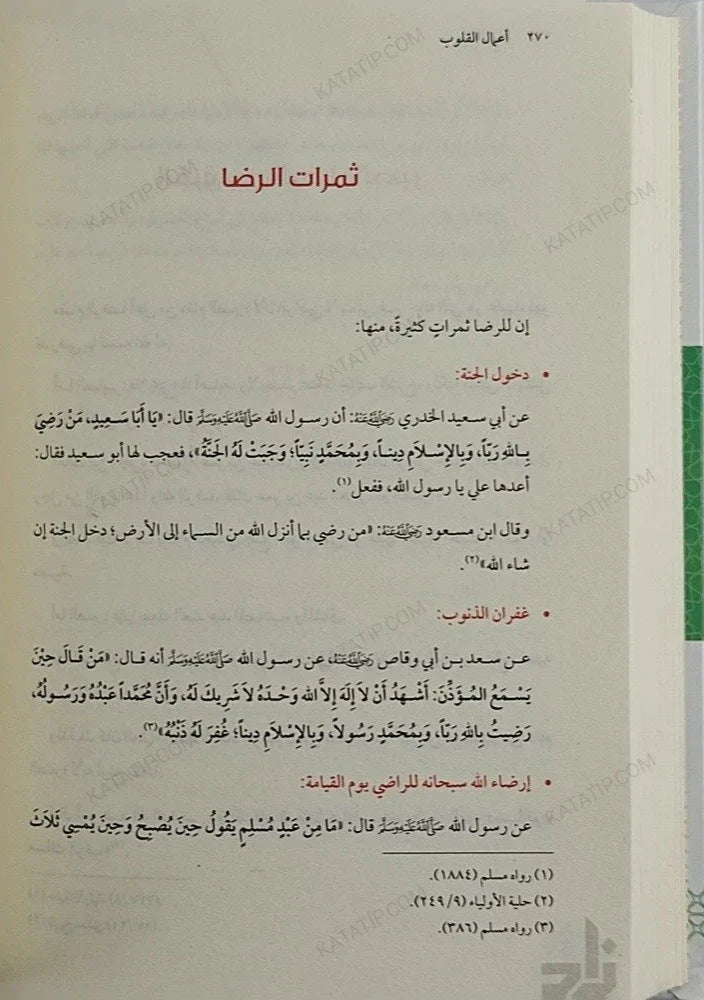 ٢٧٠ أعمال القلوب
ثمرات الرضا
إن للرضا ثمراتٍ كثيرةً، منها:
• دخول الجنة:
عن أبي سعيد الخدري رَضِيَ اللَّهُ عَنْهُ: أن رسول الله صَلَّى اللَّهُ عَلَيْهِ وَسَلَّمَ قال: «يَا أَبَا سَعِيدٍ، مَنْ رَضِيَ
بِاللهِ رَبّاً، وَبِالإِسْلَامِ دِيناً، وَبِمُحَمَّدٍ نَبِيّاً؛ وَجَبَتْ لَهُ الجَنَّةُ»، فعجب لها أبو سعيد فقال:
أعدها علي يا رسول الله، ففعل(١).
وقال ابن مسعود رَضِيَ اللَّهُ عَنْهُ: «من رضي بما أنزل الله من السماء إلى الأرض؛ دخل الجنة إن
شاء الله»(٢).
• غفران الذنوب:
عن سعد بن أبي وقاص رَضِيَ اللَّهُ عَنْهُ، عن رسول الله صَلَّى اللَّهُ عَلَيْهِ وَسَلَّمَ أنه قال: «مَنْ قَالَ حِيْنَ
يَسْمَعُ المُؤَذِّنَ: أَشْهَدُ أَنْ لاَ إِلَهَ إِلاَّ الله وَحْدَهُ لاَ شَرِيكَ لَهُ، وَأَنَّ مُحَمَّداً عَبْدُهُ وَرَسُولُهُ،
رَضِيتُ بِاللهِ رَبّاً، وَبِمُحَمَّدٍ رَسُولاً، وَبِالإِسْلاَمِ دِيناً؛ غُفِرَ لَهُ ذَنْبُهُ»(٣).
• إرضاء الله سبحانه للراضي يوم القيامة:
عن رسول الله صَلَّى اللَّهُ عَلَيْهِ وَسَلَّمَ قال: «مَا مِنْ عَبْدٍ مُسْلِمٍ يَقُولُ حِينَ يُصْبِحُ وَحِينَ يُمْسِي ثَلَاثَ
(١) رواه مسلم (١٨٨٤).
(٢) حلية الأولياء (٢٤٩/٩).
(٣) رواه مسلم (٣٨٦).
زاد
KATATIP.COM
KATATIP.COM
KATATIP.COM
KATATIP.COM
KATATIP.COM
KATATIP.COM
KATATIP.COM
KATATIP.COM
KATATIP.COM
KATATIP.COM